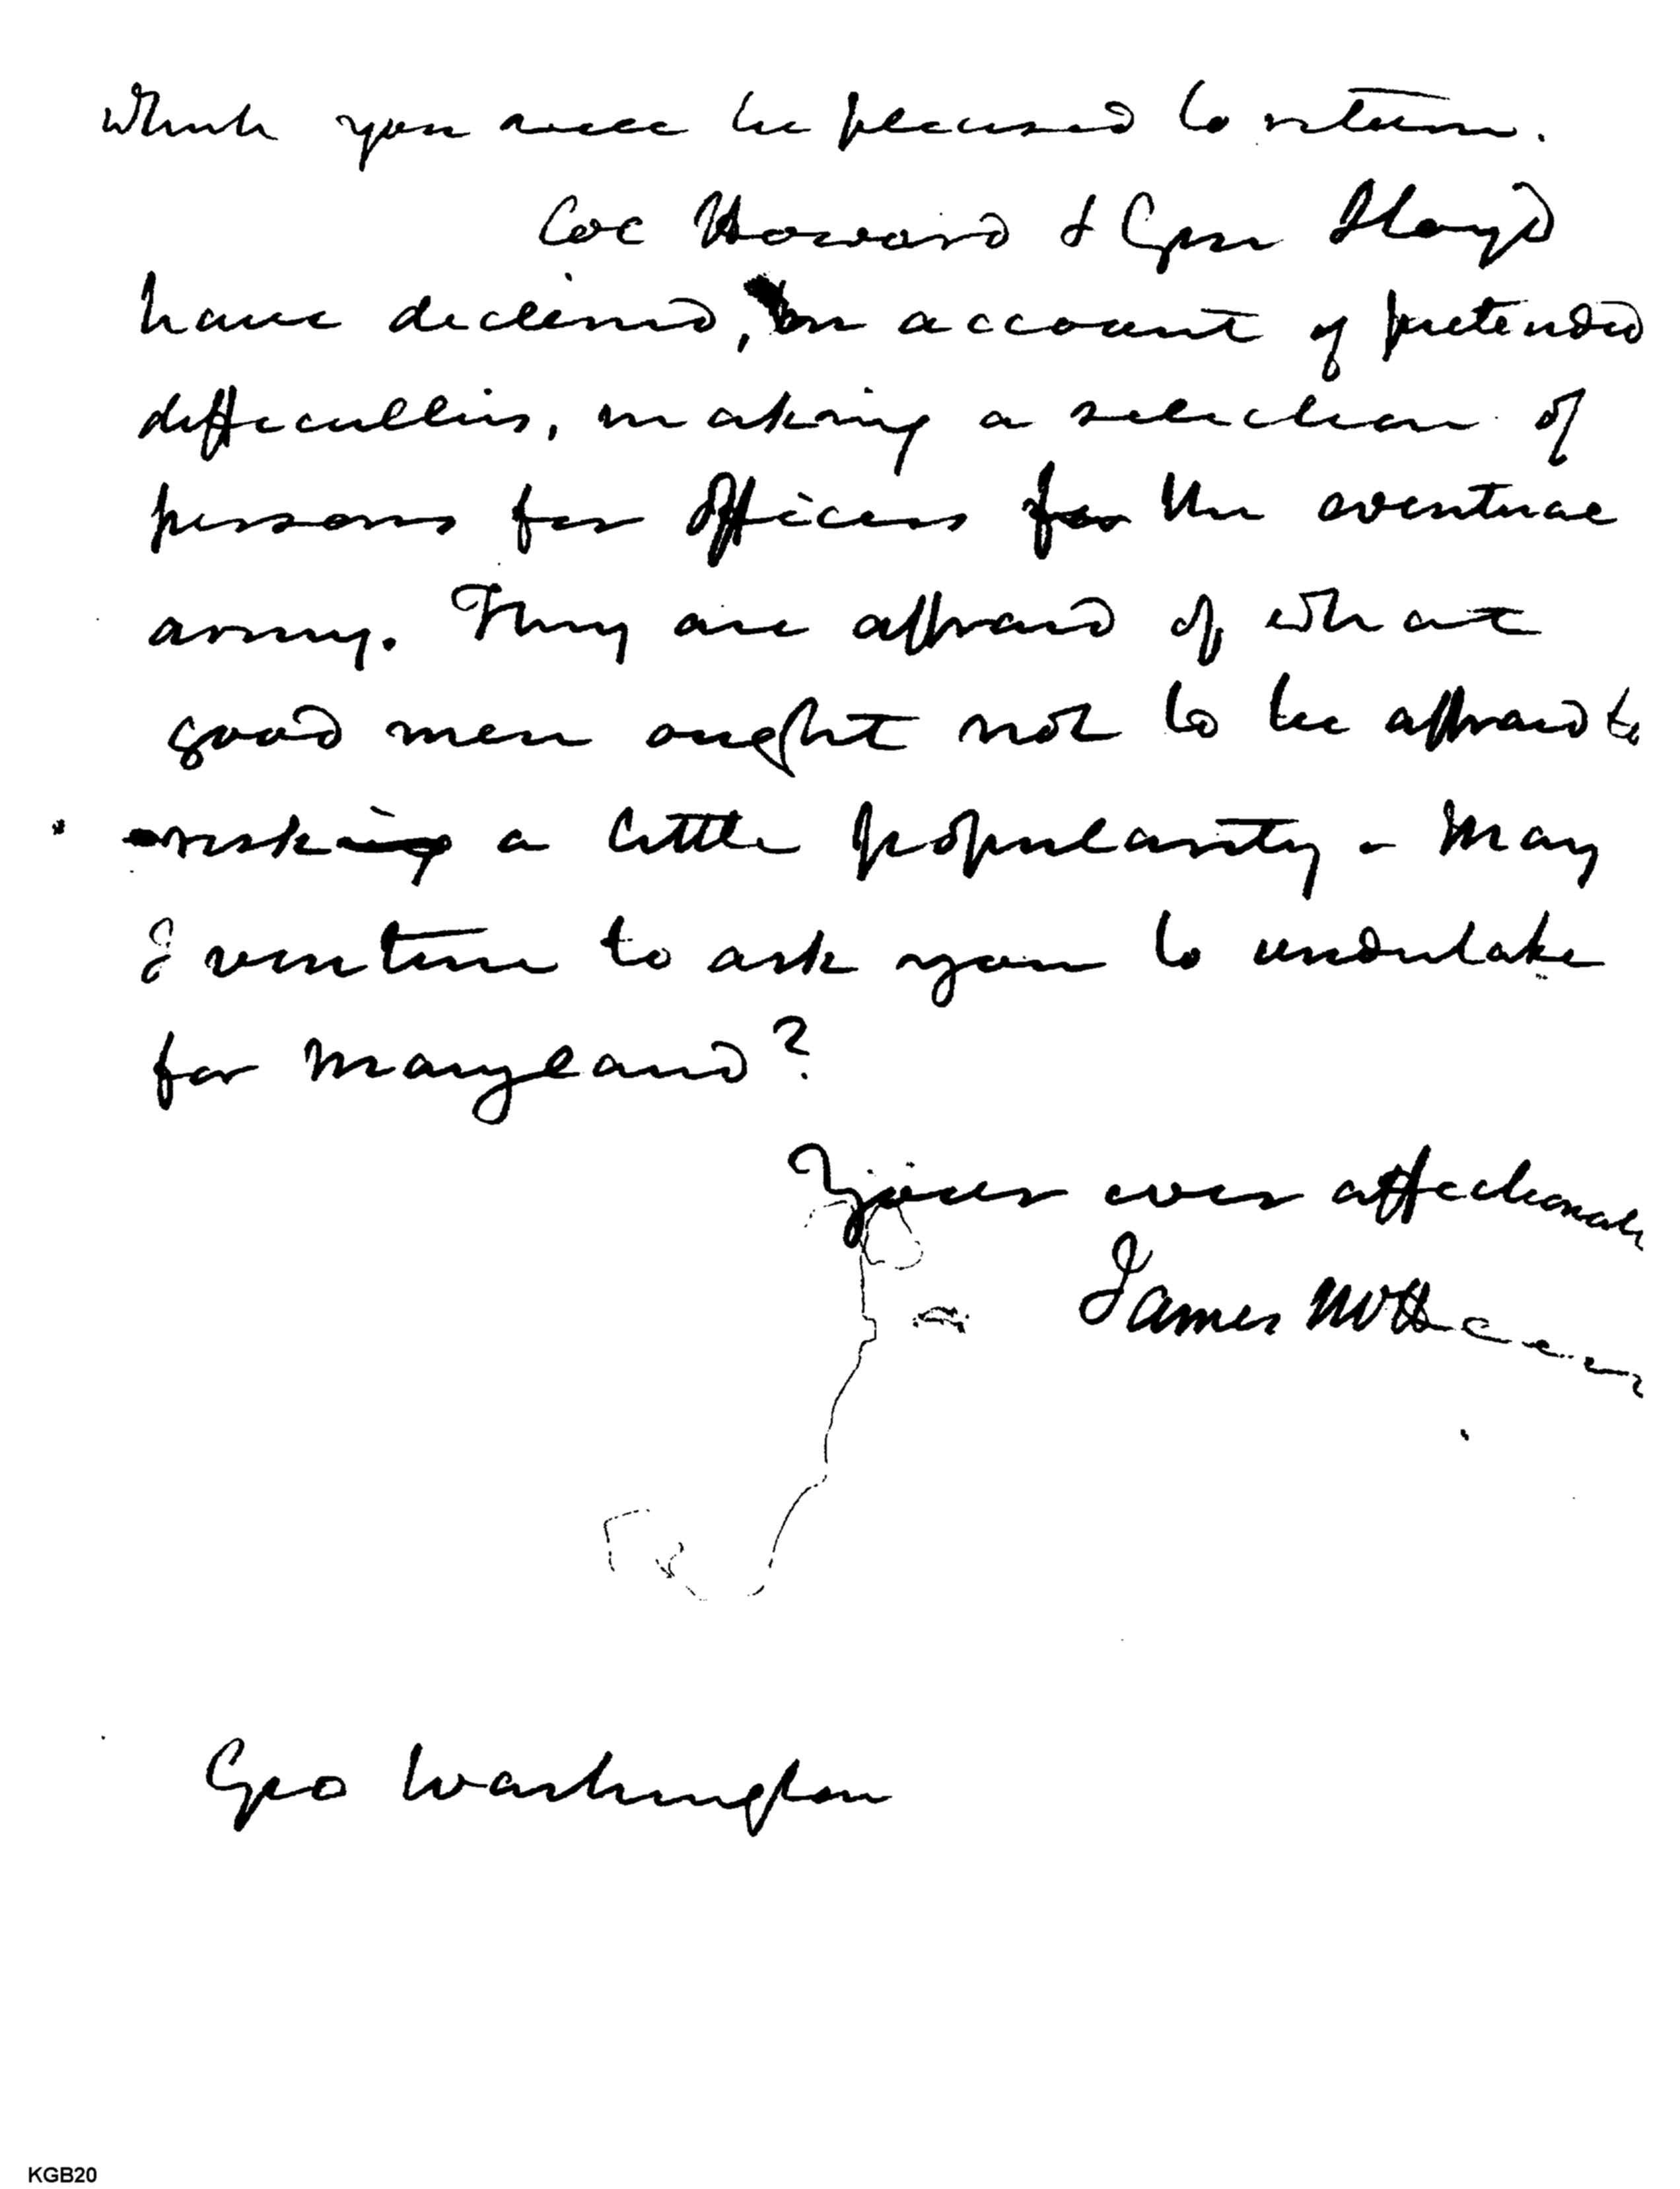 which you will be pleased to return.
Col Howard & Gen Lloyd
have declined, on account of pretended
difficulties, making a selection of
persons for officers for the eventual
army. They are affraid of what
good men ought not to be affraid to
risking a little popularity - May
I venture to ask you to undertake
for Maryland?
Yours ever affectionately
James McHenry
Geo Washington
KGB20